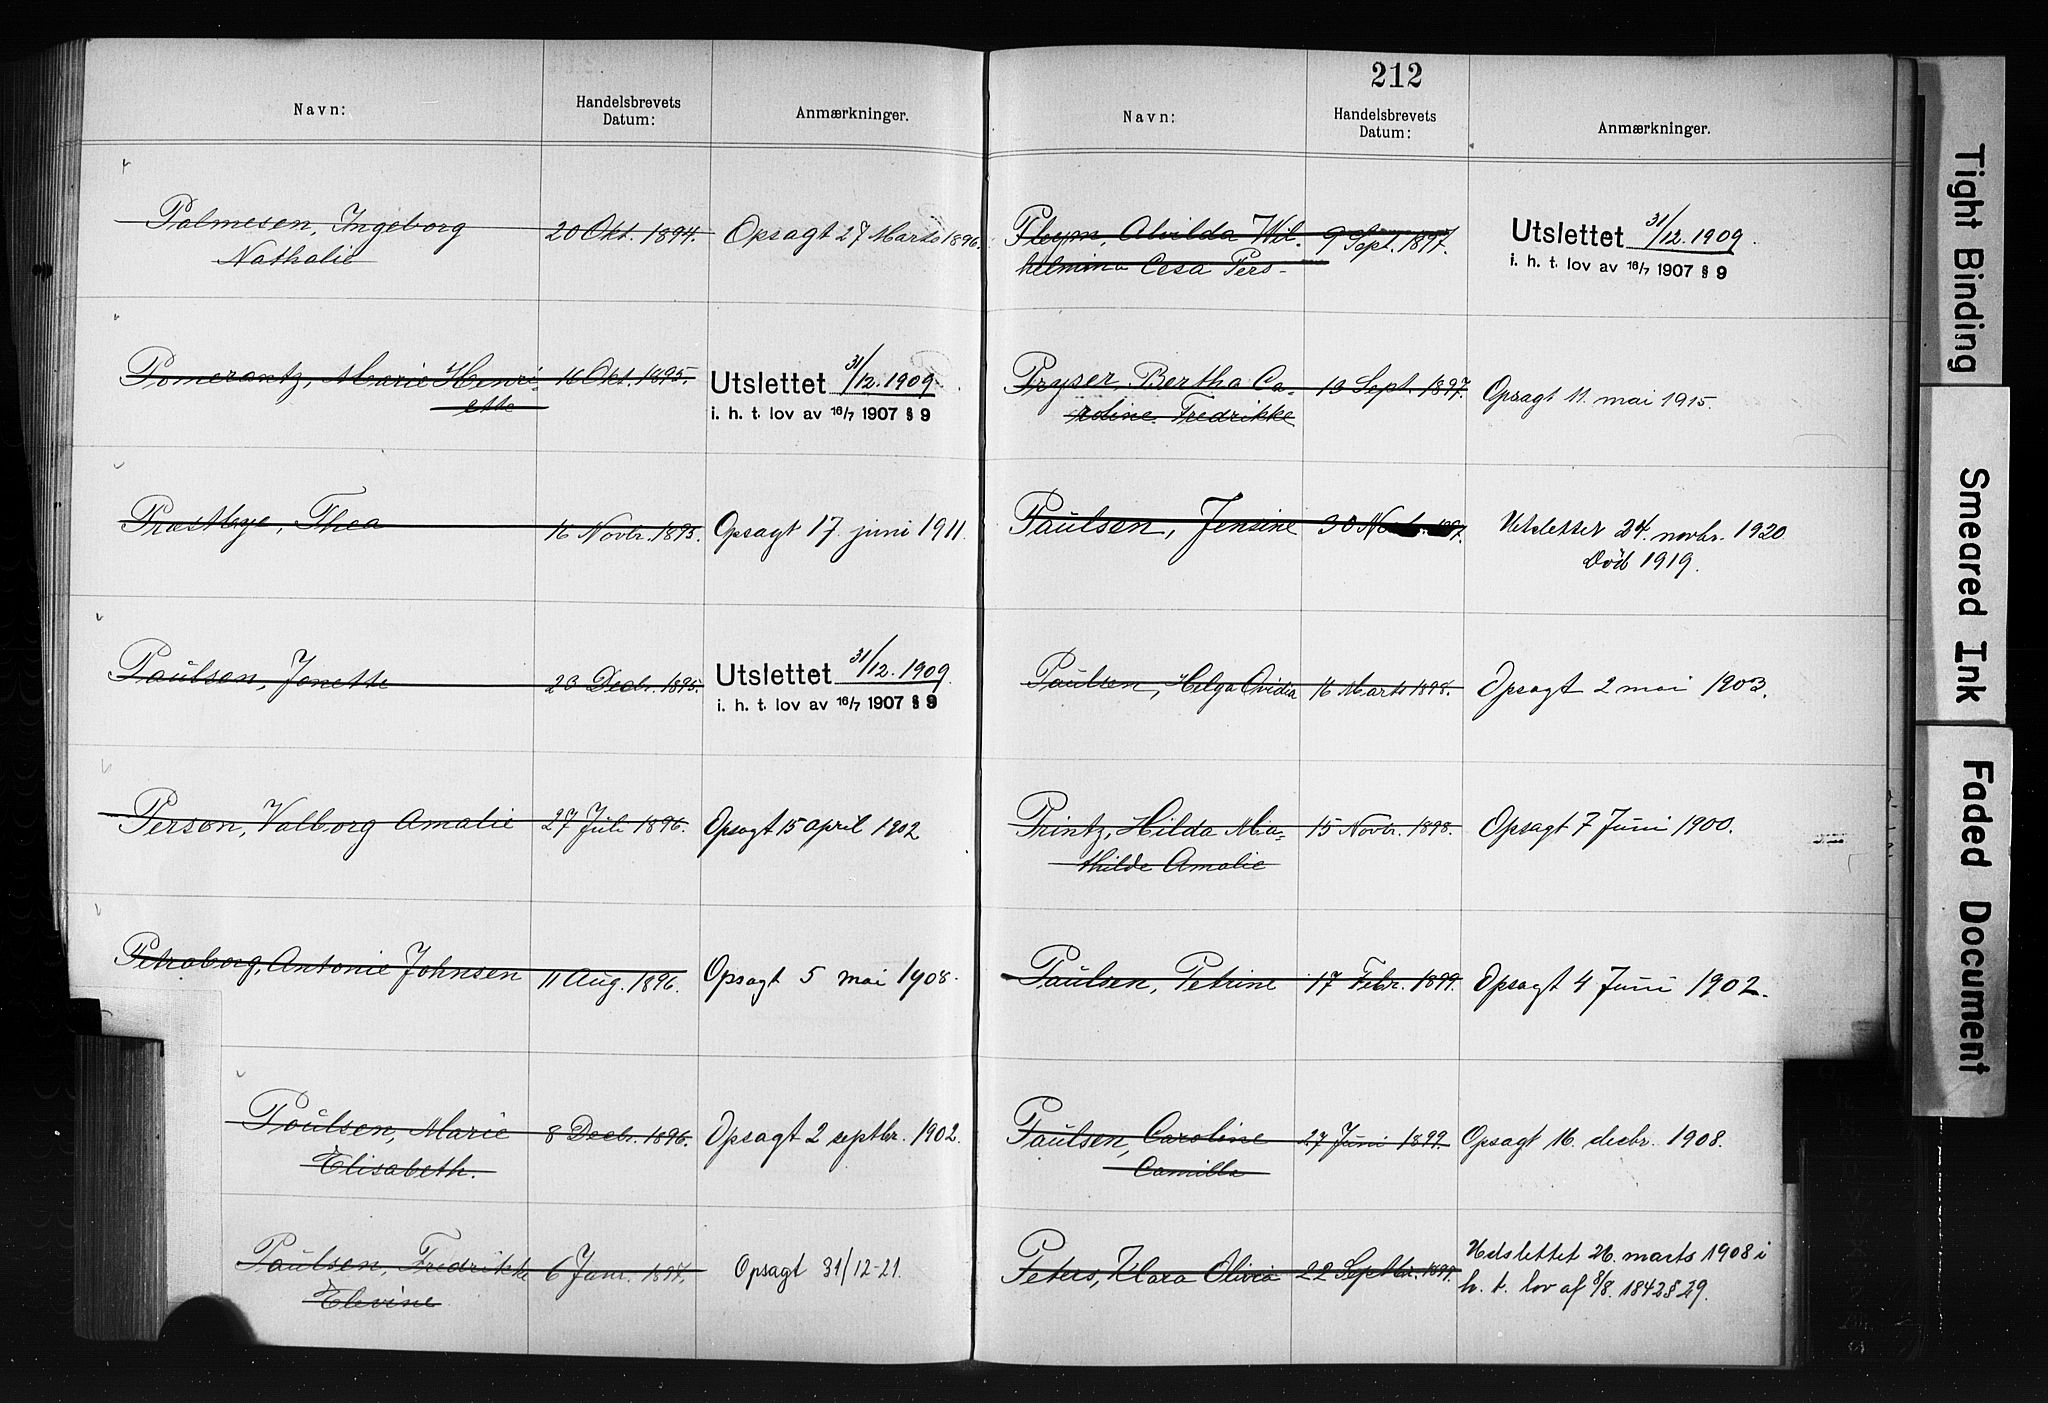 Navn:
Handelsbrevets
Datum:
Anmærkninger.
Palmesen, Ingeborg
Nathalie
20 Okt. 1894.
Opsagt 27 Marts 1896.
Pomerantz, Marie Henri-
ette
16 Okt. 1895.
Utslettet 31/12.1909.
i. h. t. lov av 16/7 1907 § 9
Præstbye, Thea
16 Novbr. 1895.
Opsagt 17. juni 1911.
Paulsen, Jonette
23 Decbr. 1895.
Utslettet 31/12.1909.
i. h. t. lov av 16/7 1907 § 9
Person, Valborg Amalie
27 Juli 1896.
Opsagt 15 april 1902
Petraborg, Antonie Johnsen
11 Aug. 1896.
Opsagt 5 mai 1908.
Poulsen, Marie
Elisabeth.
8 Decbr. 1896.
Opsagt 2 septbr. 1902.
Paulsen, Fredrikke
Elevine
6 Janr. 1897.
Opsagt 31/12-21.
212
Navn:
Handelsbrevets
Datum:
Anmærkninger.
Pleym, Alvilda Wil-
helmina Cesa Pers-
9 Sept. 1897.
Utslettet 31/12.1909.
i. h. t. lov av 16/7 1907 § 9
Pryser, Bertha Ca-
roline Fredrikke
13 Sept. 1897.
Opsagt 11. mai 1915.
Paulsen, Jensine
30
Utslettet 24. novbr. 1920.
Död 1919.
Paulsen, Helga Ovidia
16 Marts 1898.
Opsagt 2 mai 1903.
Printz, Hilda Ma-
thilde Amalie
15 Novbr. 1898.
Opsagt 7 Juni 1900.
Paulsen, Petrine
17 Febr. 1899.
Opsagt 4 Juni 1902.
Paulsen, Caroline
Camilla
27 Juni 1899.
Opsagt 16. decbr. 1908.
Peters, Klara Olivia
22 Septbr. 1899.
Udslettet 26. marts 1908 i
h. t. lov af 8/8. 1842 § 29.
Tight Binding
Smeared Ink
Faded Document